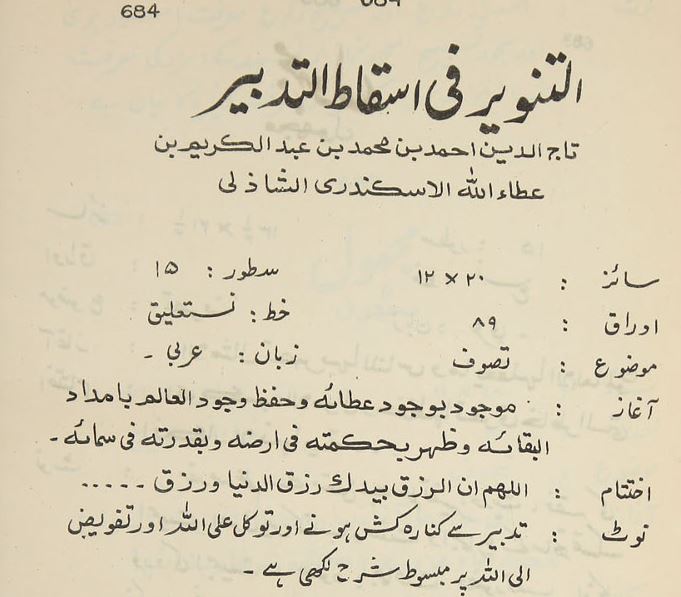 684
التنویر فی اسقاط التدبیر
تاج الدین احمد بن محمد بن عبد الکریم بن
عطاء الله الاسکندری الشاذلی
سائز : ۲۰ × ۱۲ سطور : ۱۵
اوراق : ۸۹ خط : نستعلیق
موضوع : تصوف زبان : عربی ۔
آغاز : موجود بوجود عطائه وحفظ وجود العالم بامداد
البقائه وظهر بحکمته فی ارضه وبقدرته فی سمائه ۔
اختتام : اللهم ان الرزق بیدك رزق الدنیا ورزق ۔۔۔۔۔
نوٹ : تدبیر سے کنارہ کش ہونے اور توکل علی اللہ اور تفویض
الی اللہ پر مبسوط شرح لکھی ہے ۔